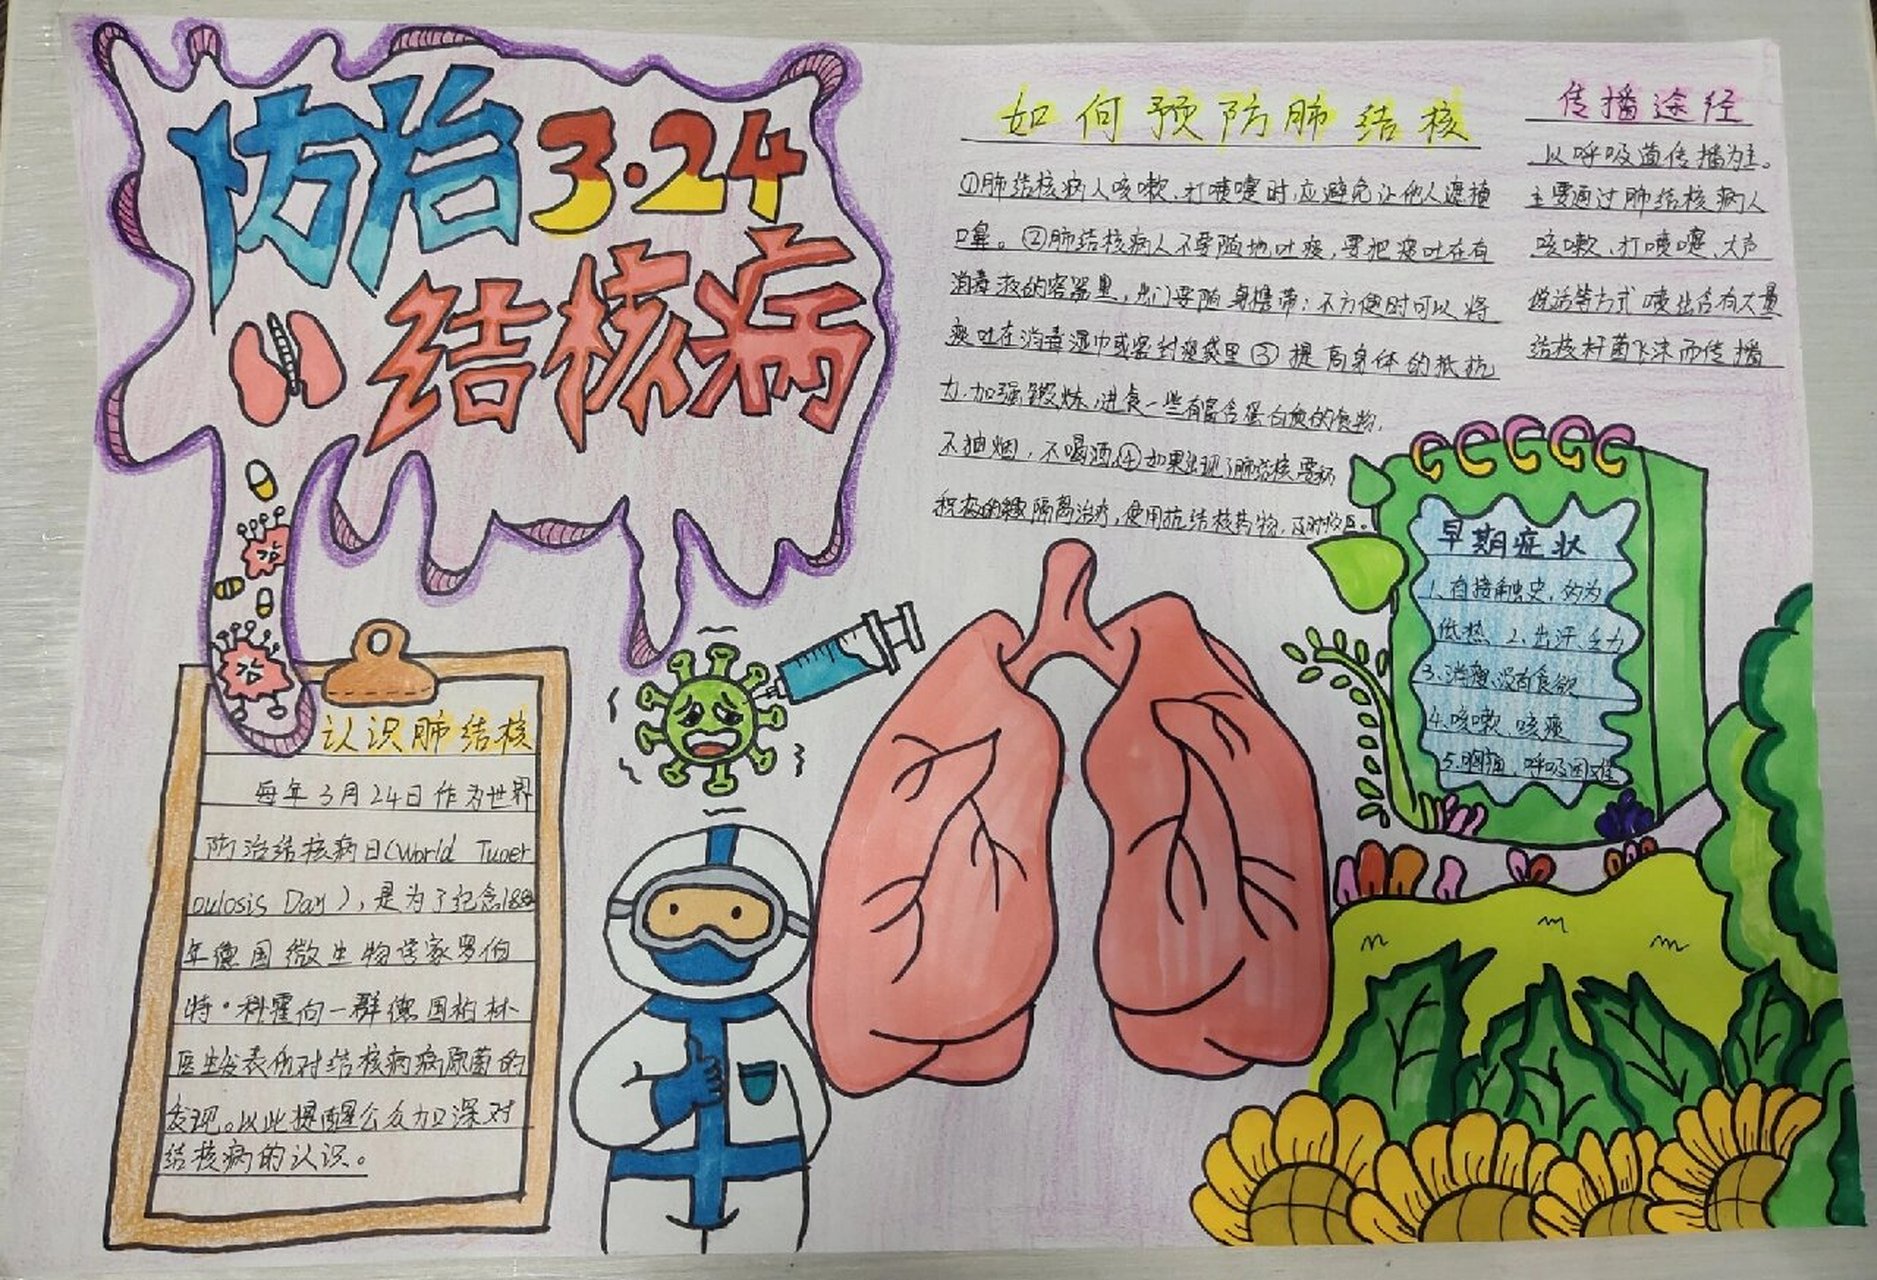 防治 3·24
结核病
认识肺结核
每年3月24日作为世界
防治结核病日(World Tuber
culosis Day),是为了纪念1882
年德国微生物学家罗伯
特·科霍向一群德国柏林
医生发表他对结核病病原菌的
发现。以此提醒公众加深对
结核病的认识。
如何预防肺结核
①肺结核病人咳嗽、打喷嚏时,应避免让他人遮掩
口鼻。②肺结核病人不要随地吐痰,要把痰吐在有
消毒液的容器里,出门要随身携带;不方便时可以将
痰吐在消毒湿巾或密封痰袋里③提高身体的抵抗
力.加强锻炼,进食一些有富含蛋白质的食物,
不抽烟,不喝酒.④如果出现了肺结核要
积极的 隔离治疗,使用抗结核药物,及时
传播途径
以呼吸道传播为主。
主要通过肺结核病人
咳嗽、打喷嚏、大声
说话等方式喷出含有大量
结核杆菌飞沫而传播
早期症状
1、有接触史,多为
低热 2.出汗、乏力
3、消瘦、没有食欲
4.咳嗽、咳痰
5.胸痛、呼吸困难